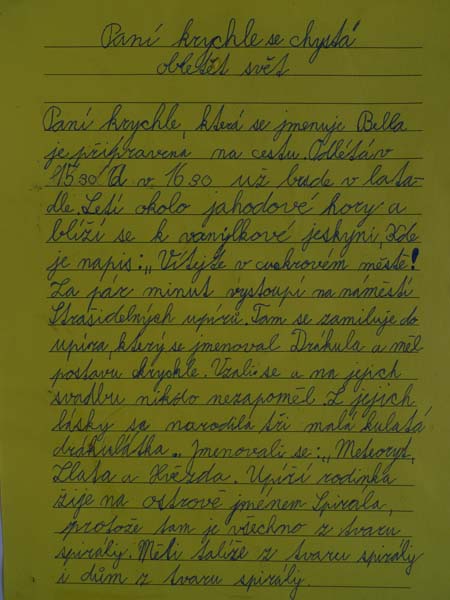 Paní krychle se chystá
obletět svět
Paní krychle, která se jmenuje Bella
je připravena na cestu. Odlétá v
15 30 a v 16 30 už bude v leta-
dle. Letí okolo jahodové hory a
blíží se k vanilkové jeskyni, kde
je napis: „Vítejte v cukrovém městě!
Za pár minut vystoupí na naměstí
Strašidelných upírů. Tam se zamiluje do
upíra, který se jmenoval Drákula a měl
postavu krychle. Vzali se a na jejich
svadbu nikdo nezapoměl. Z jejich
lásky se narodila tři malá kulatá
drákulátka„. Jmenovali se: „Meteoryt,
Zlata a Hvězda. Upíří rodinka
žije na ostrově jménem Spirála,
protože tam je všechno z tvaru
spirály. Měli talíře z tvaru spirály
i dům z tvaru spirály.